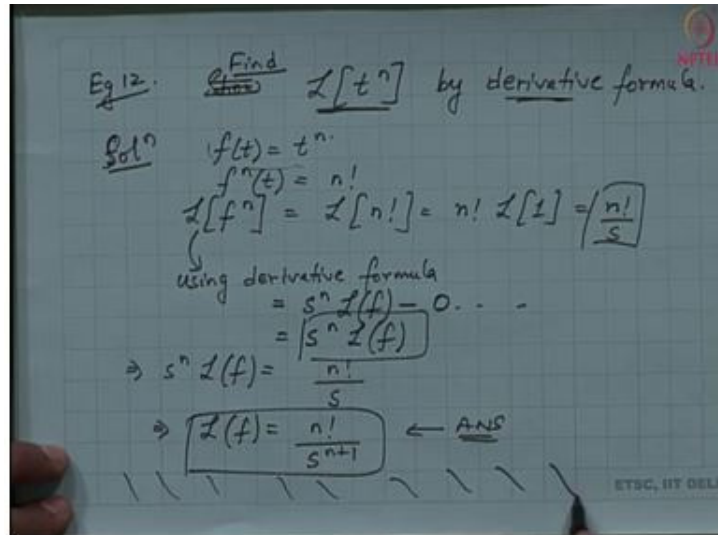 Find
Eg 12. L[tⁿ] by derivative formula.
NPTEL
Solⁿ f(t) = tⁿ.
fⁿ(t) = n!
L[fⁿ] = L[n!] = n! L[1] = n!/s
using derivative formula
= sⁿ L(f) - 0 . . . -
= sⁿ L(f)
⇒ sⁿ L(f) = n!/s
⇒ L(f) = n!/sⁿ⁺¹ ← ANS
ETSC, IIT DEL